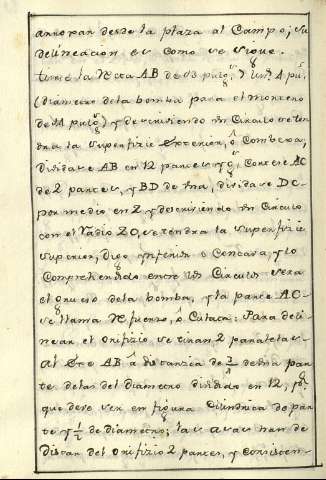 arrojan desde la plaza al Campo; su
delineacion es como se sigue.
tirese la Recta AB de 13 pulgs. y
(diametro dela bomba para el mortero
de 11 pulgs.) y descriviendo un Circulo se ten
dra la superfizie Exterior, ô Combexa,
dividase AB en 12 partes y gs. Cortese AC
de 2 partes, y BD de una, dividase DC
por medio en Z y descriviendo un Circulo
con el Radio ZO, se tendra la superfizie
superior, Digo ynferior o Concava, y lo
Comprehendido entre los Circulos sera
el grueso dela bomba, y la parte AC
se llama Refuerzo, ô Culata: Para deli-
near el Orifizio se tiran 2 paralelas
al Exe AB â distanzia de de una par
te delas del diametro dividido en 12, pr.
que deve ser en figura Cilindrica de par
te y ½ de diametro; las asas han de
distar del Orifizio 2 partes, y consisten